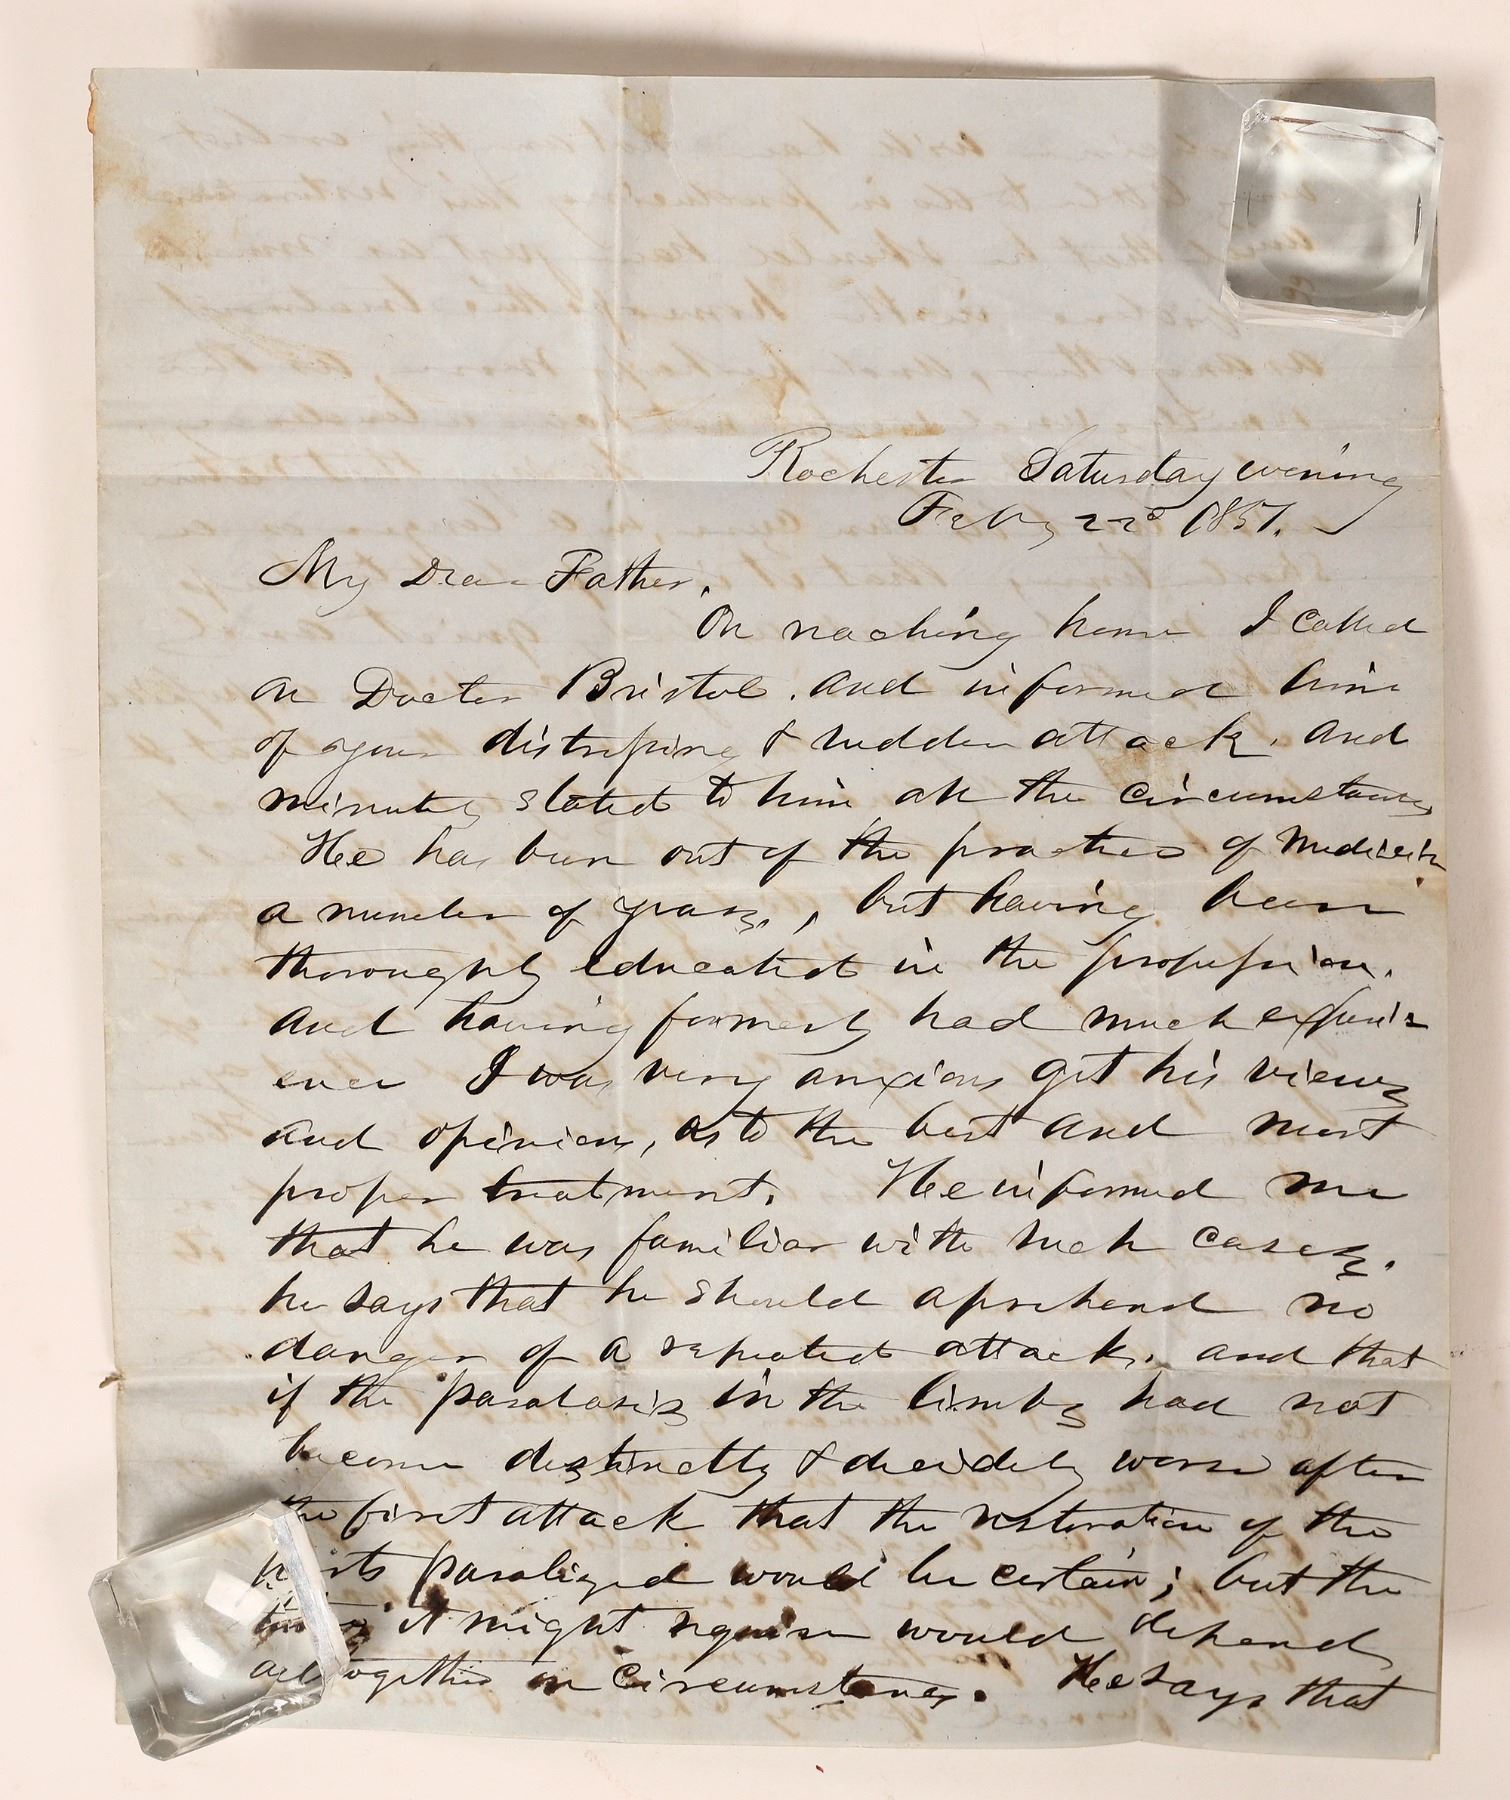 Rochester Saturday evening
Feby 22d 1851.
My Dear Father.
On reaching home I called
on Doctor Bristol. and informed him
of your distressing & sudden attack. and
minutely stated to him all the circumstances
He has been out of the practice of Medicine
a number of years, but having been
thoroughly educated in the profession.
and having formerly had much experi
ence I was very anxious get his views
and opinion, as to the best and most
proper treatment. He informed me
that he was familiar with such cases.
he says that he should aprehend no
danger of a repeated attack. and that
if the paralasis in the limbs had not
become destinctly & decidely worse after
the first attack that the restoration of the
parts paralized would be certain; but the
time it might require would depend
altogether on Circumstances. He says that